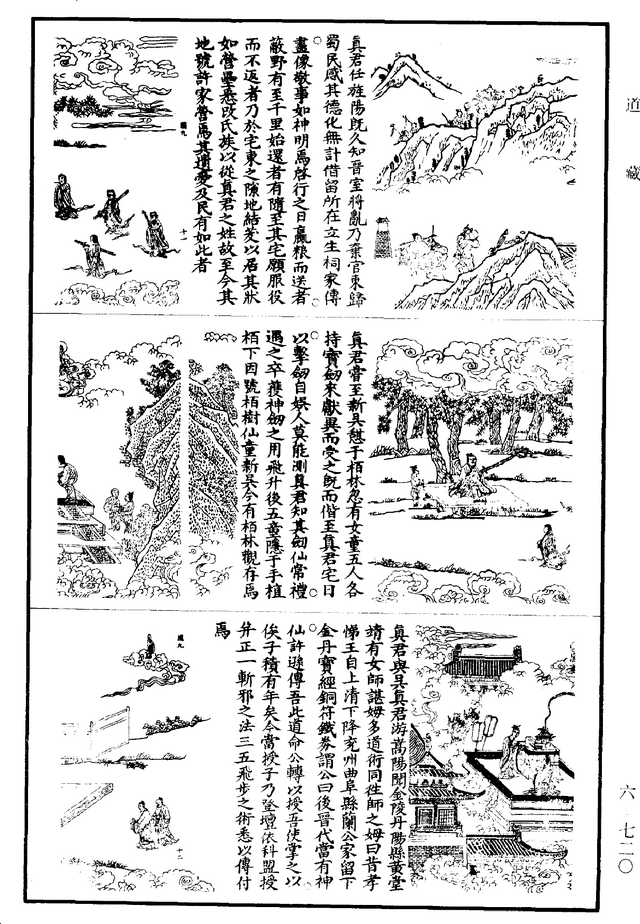 道藏
真君任旌陽既久知晉室將亂乃棄官東歸
蜀民感其德化無計借留所在立生祠家傳
畫像敬事如神明焉啓行之日贏粮而送者
蔽野有至千里始還者有隨至其宅願服役
而不返者乃於宅東之隙地結茇以居其狀
如營壘悉改氏族以從真君之姓故至今其
地號許家營焉其遺愛及民有如此者
圖九
十一
真君嘗至新吳憩于栢林忽有女童五人各
持寶劒來獻異而受之既而偕至真君宅日
以擊劒自娛人莫能測真君知其劒仙常禮
遇之卒獲神劒之用飛升後五童隱于手植
栢下因號栢樹仙童新吳今有栢林觀存焉
真君與吳真君游嵩陽聞金陵丹陽縣黃堂
靖有女師諶姆多道術同徃師之姆曰昔孝
悌王自上清下降兖州曲阜縣蘭公家留下
金丹寶經銅符鐵券謂公曰後晉代當有神
仙許遜傳吾此道命公轉以授吾使掌之以
俟子積有年矣今當授子乃登壇依科盟授
并正一斬邪之法三五飛步之術悉以傳付
焉
圖九
六 七二〇